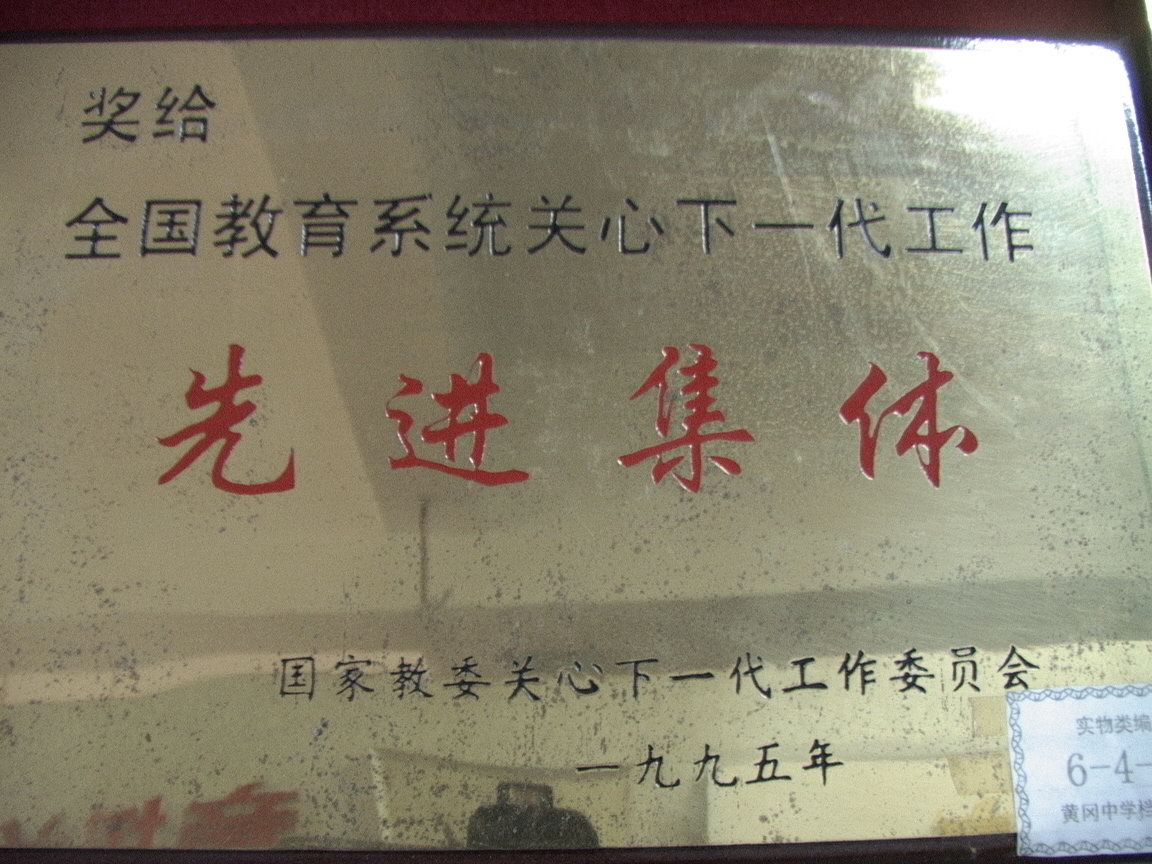 奖给
全国教育系统关心下一代工作
先进集体
国家教委关心下一代工作委员会
一九九五年
实物类编
6-4-
黄冈中学档